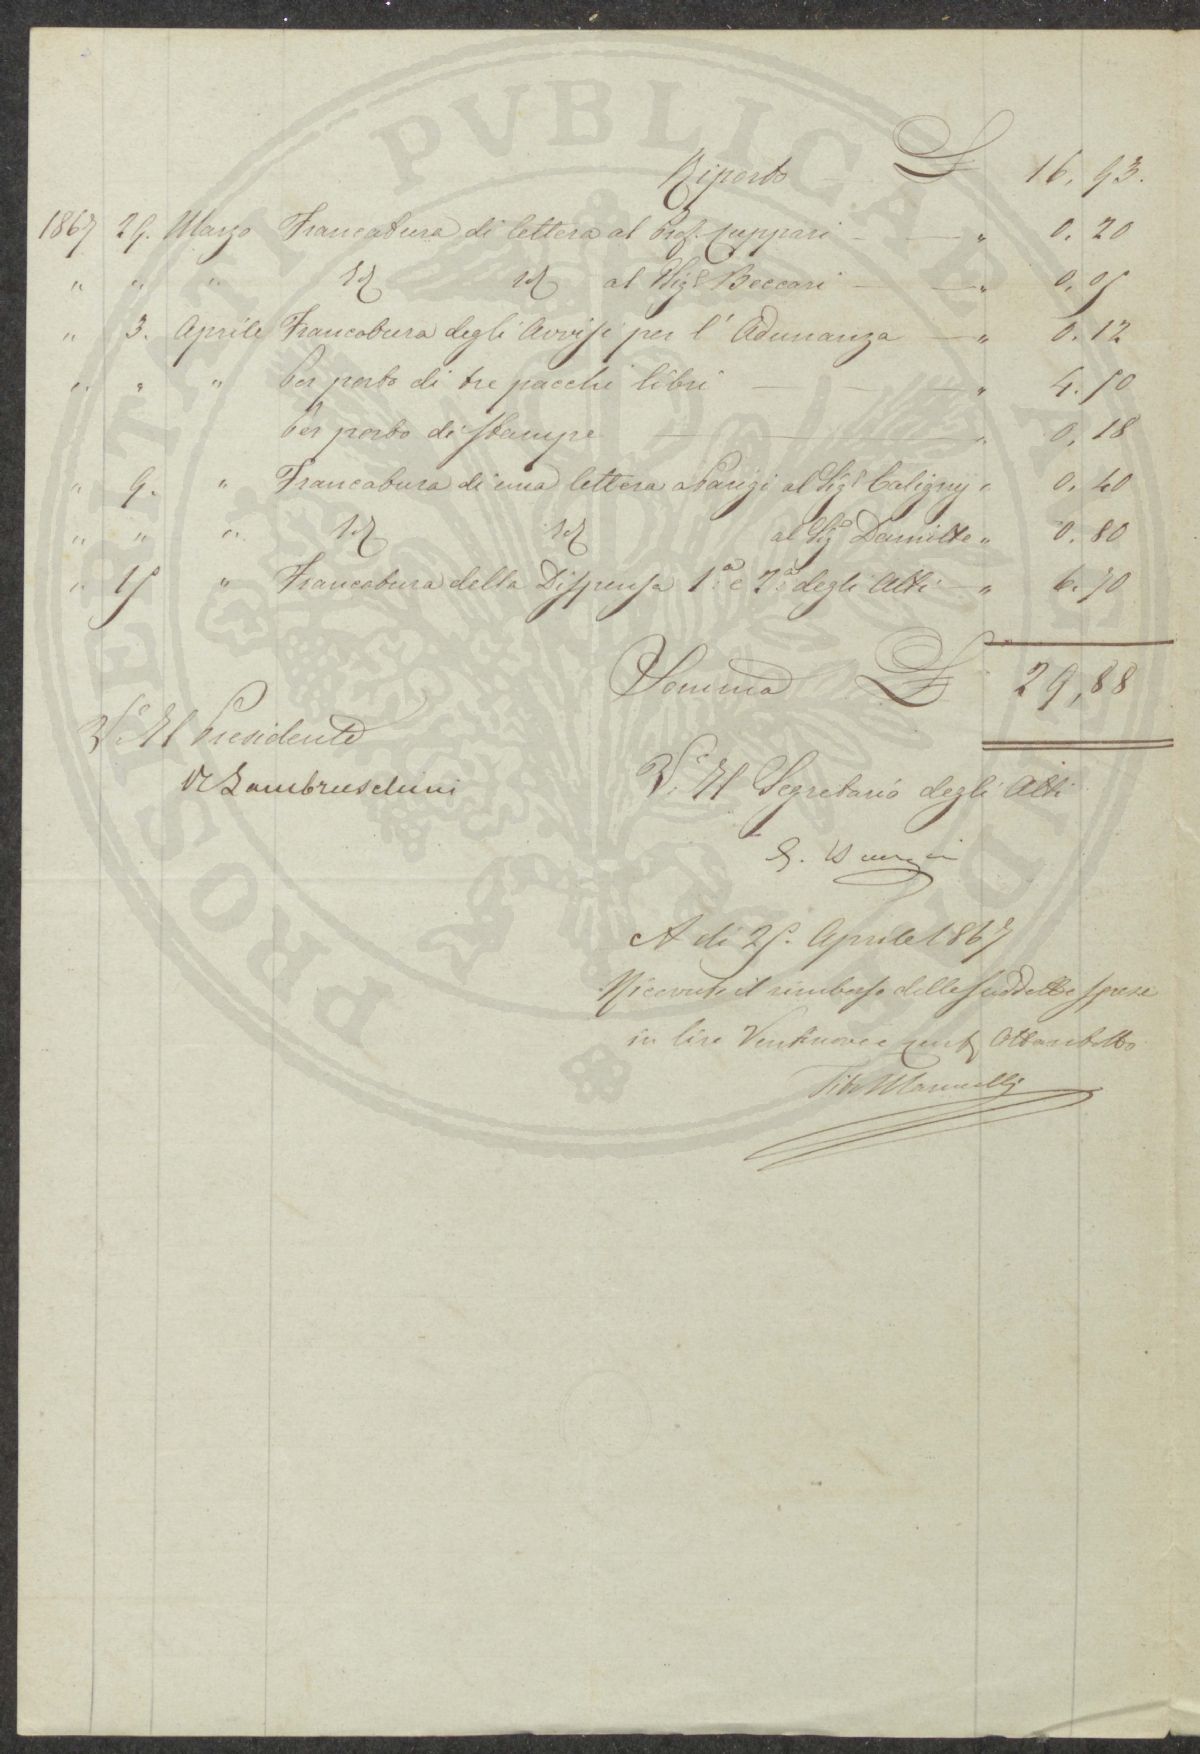 PROSPERITATI PVBLICAE AVGENDAE
Riporto £ 16. 93.
1867 29. Marzo Francatura di lettera al Prof. Cuppari — " 0. 20
" " " Id Id al Sigr Beccari — " 0. 05
" 3. Aprile Francatura degli Avvisi per l'Adunanza — " 0. 12
" " " Per porto di tre pacchi libri — " 4. 50
Per porto di Stampe — " 0. 18
" 9. " Francatura di una lettera a Parigi al Sigr Caligny " 0. 40
" " " Id Id al Sigr " 0. 80
" 15 " Francatura della Dispensa 1ª e 2ª degli Atti — " 6. 70
Somma £ 29,88
Vo Il Presidente
R Lambruschini
Vo Il Segretario degli Atti
A di 25. Aprile 1867
Ricevuto il rimborso delle suddette spese
in lire Ventinove e cent. Ottantotto
Marucelli